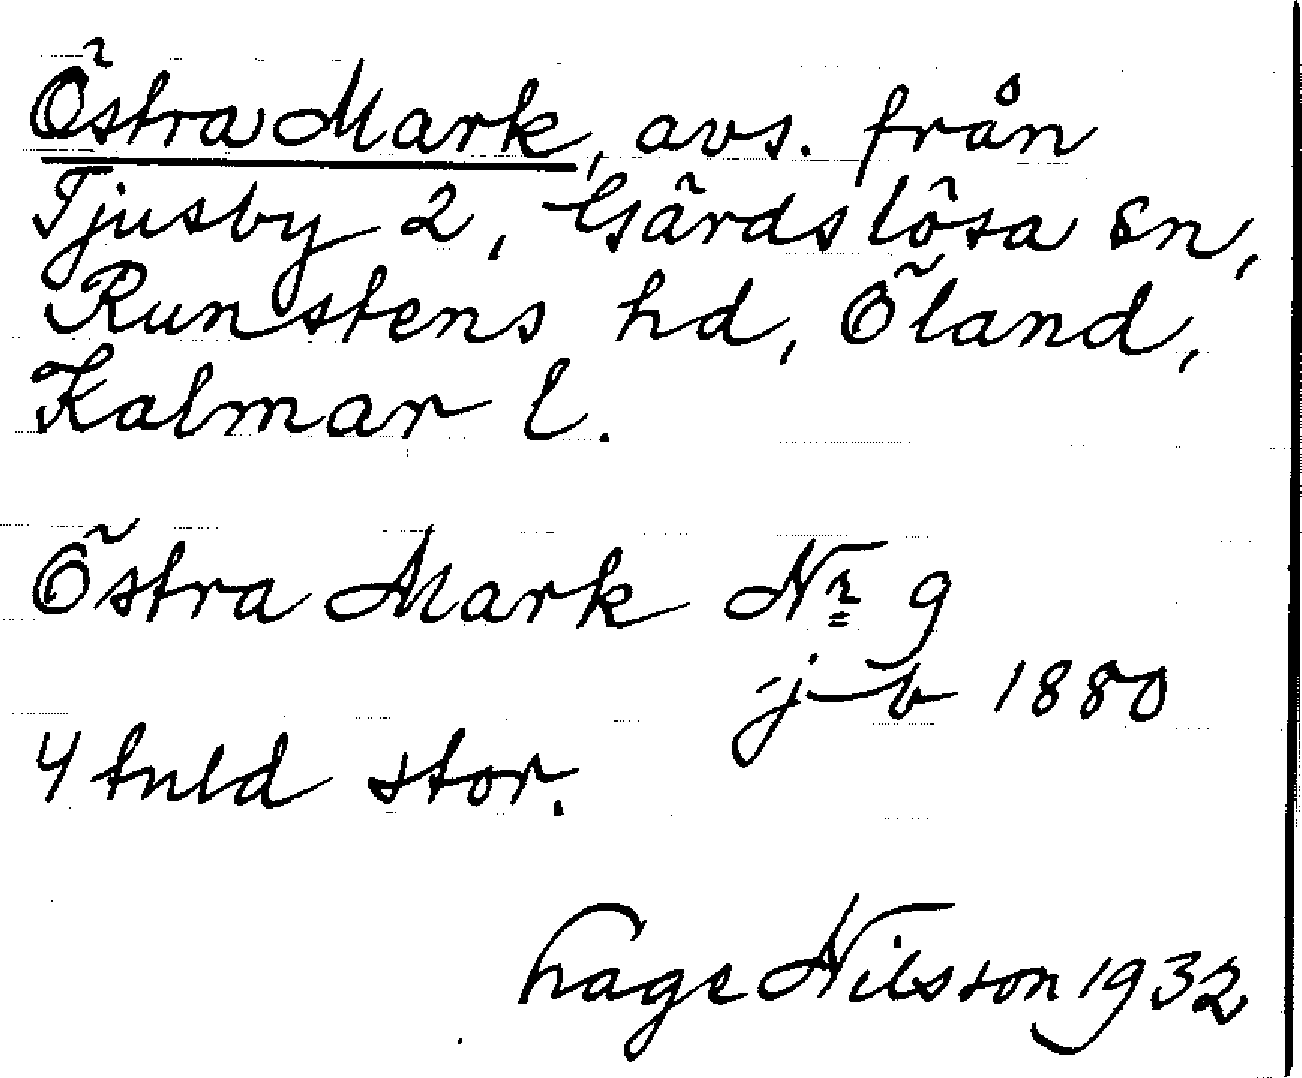 Östra Mark, avs. från
Tjusby 2, Gärdslösa sn,
Runstens hd, Öland,
Kalmar l.
Östra Mark Nr 9
jb 1880
4 tnld stor.
Hage Nilsson 1932